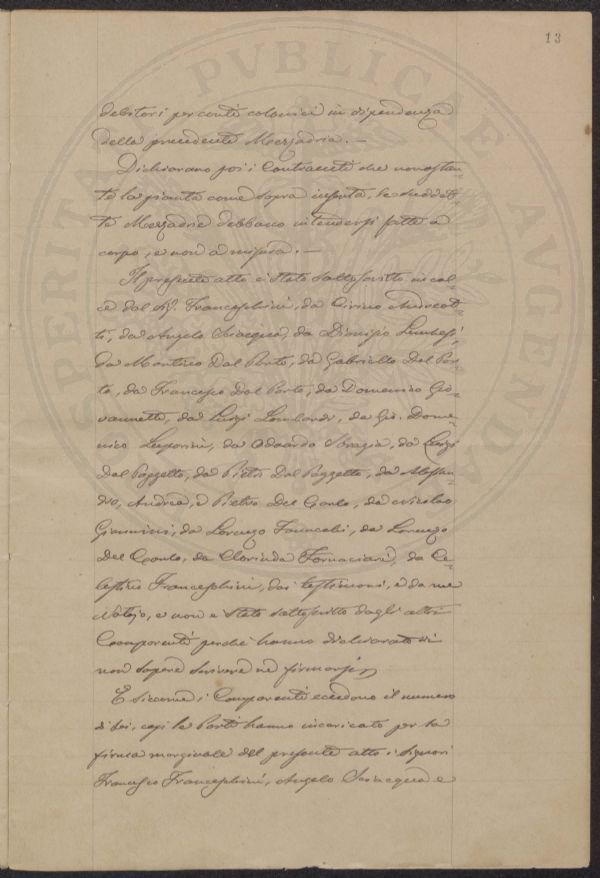 13
debitori per conti colonici in dipendenza
della precedente Mezzadria. —
Dichiarano poi i Contraenti che nonostan-
te la pianta come sopra inserta, le suddet-
te Mezzadrie debbano intendersi fatte a
corpo, e non a misura. —
Il presente atto è stato sottoscritto in cal-
ce dal Sig. Franceschini, da Cirino Andreot-
ti, da Angelo Sciacqua, da Dionisio
da Dal Porto, da Gabriello Del Por-
to, da Francesco Dal Porto, da Domenico Gio-
vannetti, da Luigi Lombardi, da Gio. Dome-
nico Luporini, da Odoardo Sbragia, da Luigi
Dal Pozzetto, da Pietro Dal Pozzetto, da Alessan-
dro, Andrea, e Pietro Del Carlo, da Nicolao
Giannini, da Lorenzo da Lorenzo
Del Carlo, da Clorinda Fornaciari, da Ce-
lestino Franceschini, dai testimoni, e da me
Notajo, e non è stato sottoscritto dagli altri
Componenti perché hanno dichiarato di
non sapere scrivere né firmarsi
E siccome i Comparenti eccedono il numero
di sei, così le Parti hanno incaricato per la
firma marginale del presente atto i Signori
Francesco Franceschini, Angelo Sciacqua e
PVBLICAE
SPERITA
AVGENDA